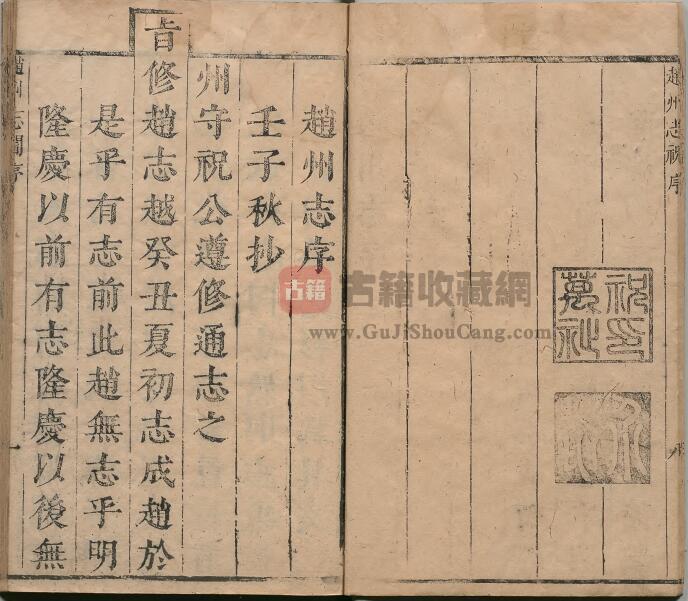 趙州志祝序
祝印
萬祉
趙州志序
壬子秋抄
州守祝公遵修通志之
旨修趙志越癸丑夏初志成趙於
是乎有志前此趙無志乎明
隆慶以前有志隆慶以後無
趙州志序
一
古籍 古籍收藏網
www.GuJiShouCang.com